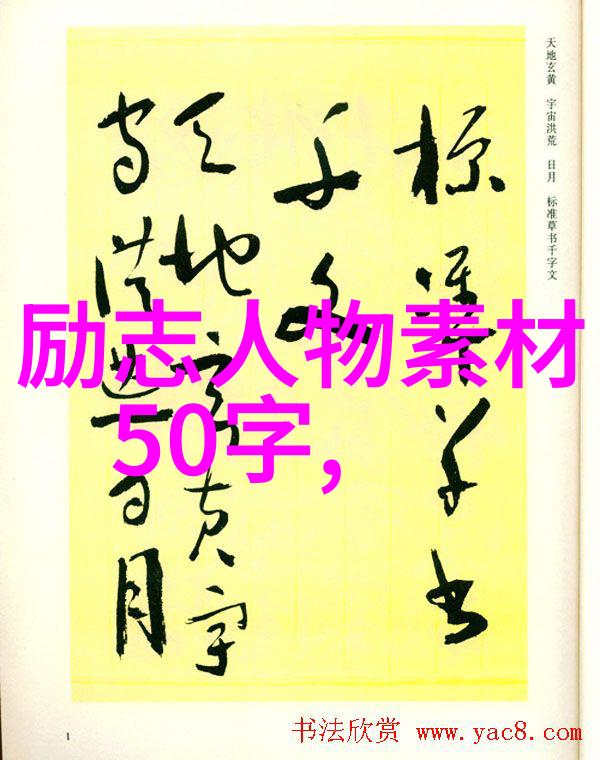 天地玄黄 宇宙洪荒 日月 标准草书千字文
標準草書
千字文
天地玄黄宇
宙洪荒日月
励志人物素材
50字,
1
书法欣赏 www.yac8.com